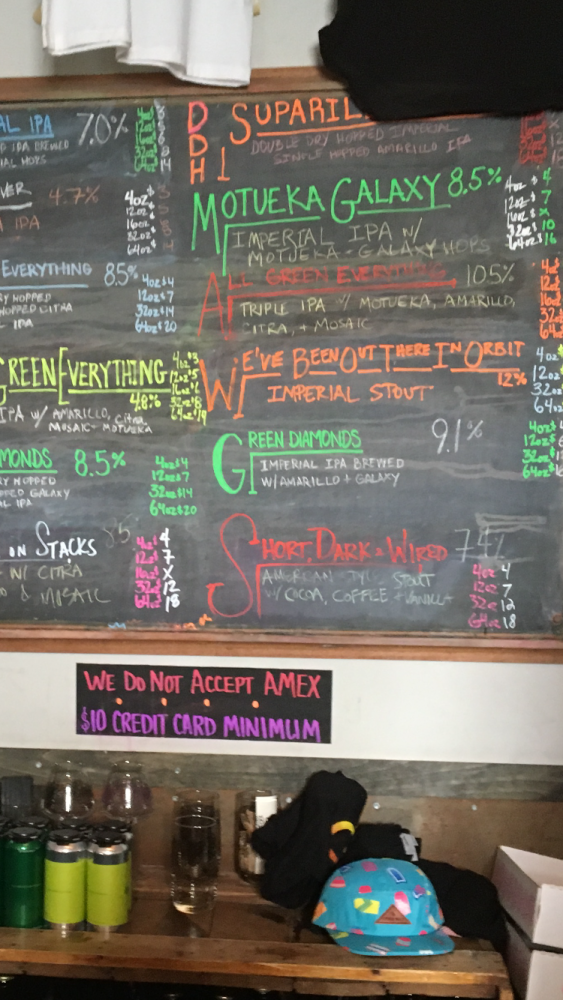 AL IPA 7.0%
IPA BREWED
4.7%
IPA
4oz $
12oz $
16oz $
32oz $
64oz $
EVERYTHING 8.5%
HOPPED
HOPPED CITRA
IPA
4oz $4
12oz $7
32oz $14
64oz $20
GREEN EVERYTHING
4.8%
IPA W/ AMARILLO, CITRA,
MOSAIC + MOTUEKA
MONDS 8.5%
HOPPED
GALAXY
IPA
4oz $4
12oz $7
32oz $14
64oz $20
ON STACKS
W/ CITRA
& MOSAIC
4oz $ 4
12oz $ 7
16oz $ X
32oz $ 12
64oz $ 18
DDH SUPARIL
DOUBLE DRY HOPPED IMPERIAL
SINGLE HOPPED AMARILLO IPA
MOTUEKA GALAXY 8.5%
IMPERIAL IPA W/
MOTUEKA + GALAXY HOPS
4oz $ 4
12oz $ 7
16oz $ X
32oz $ 10
64oz $ 16
ALL GREEN EVERYTHING 10.5%
TRIPLE IPA W/ MOTUEKA, AMARILLO,
CITRA, + MOSAIC
4oz
12oz
16oz
32oz
64oz
WE'VE BEEN OUT THERE IN ORBIT
12%
IMPERIAL STOUT
4oz
12oz
32oz
64oz
GREEN DIAMONDS 9.1%
IMPERIAL IPA BREWED
W/ AMARILLO + GALAXY
4oz
12oz
32oz
64oz
SHORT, DARK + WIRED
AMERICAN STYLE STOUT
W/ COCOA, COFFEE + VANILLA
4oz 4
12oz 7
32oz 12
64oz 18
WE DO NOT ACCEPT AMEX
$10 CREDIT CARD MINIMUM